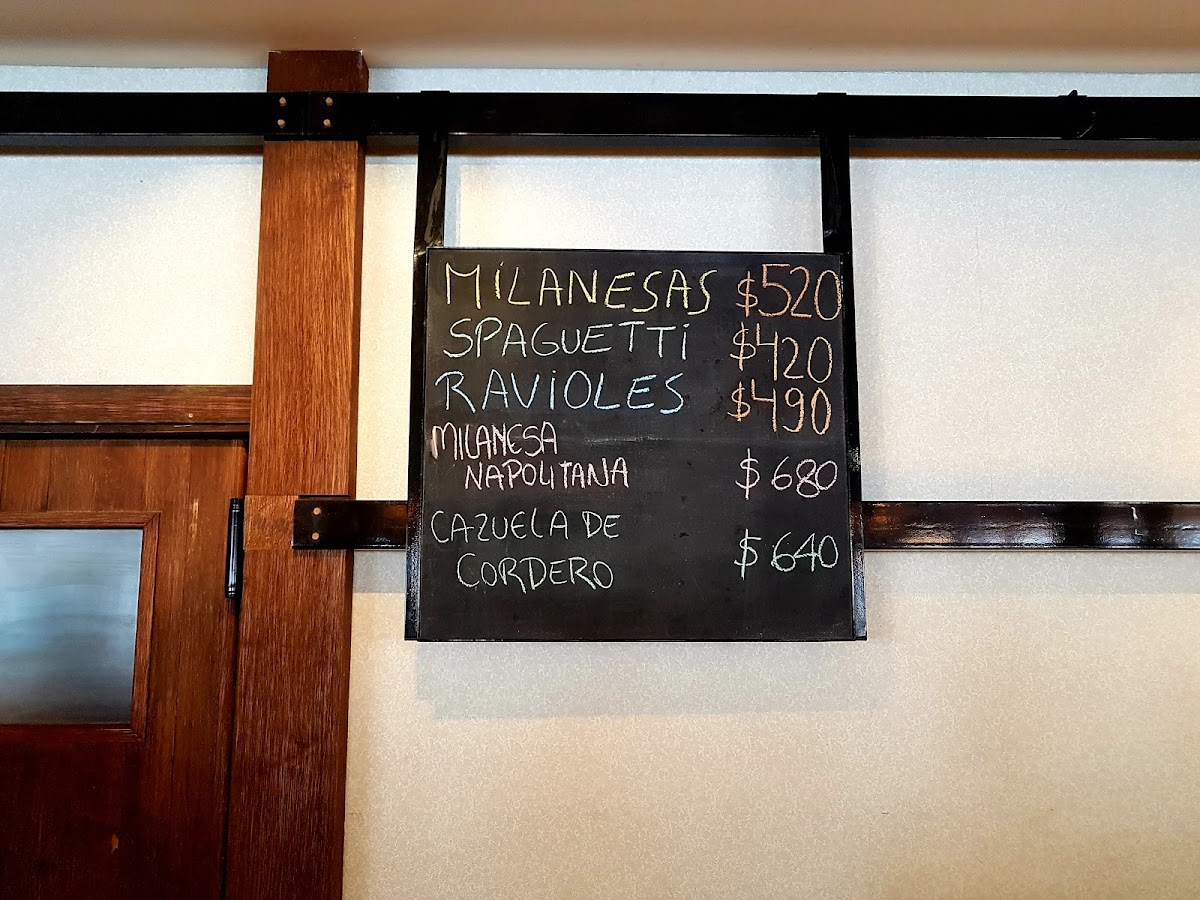 MILANESAS $520
SPAGUETTI $420
RAVIOLES $490
MILANESA
NAPOLITANA $680
CAZUELA DE
CORDERO $640